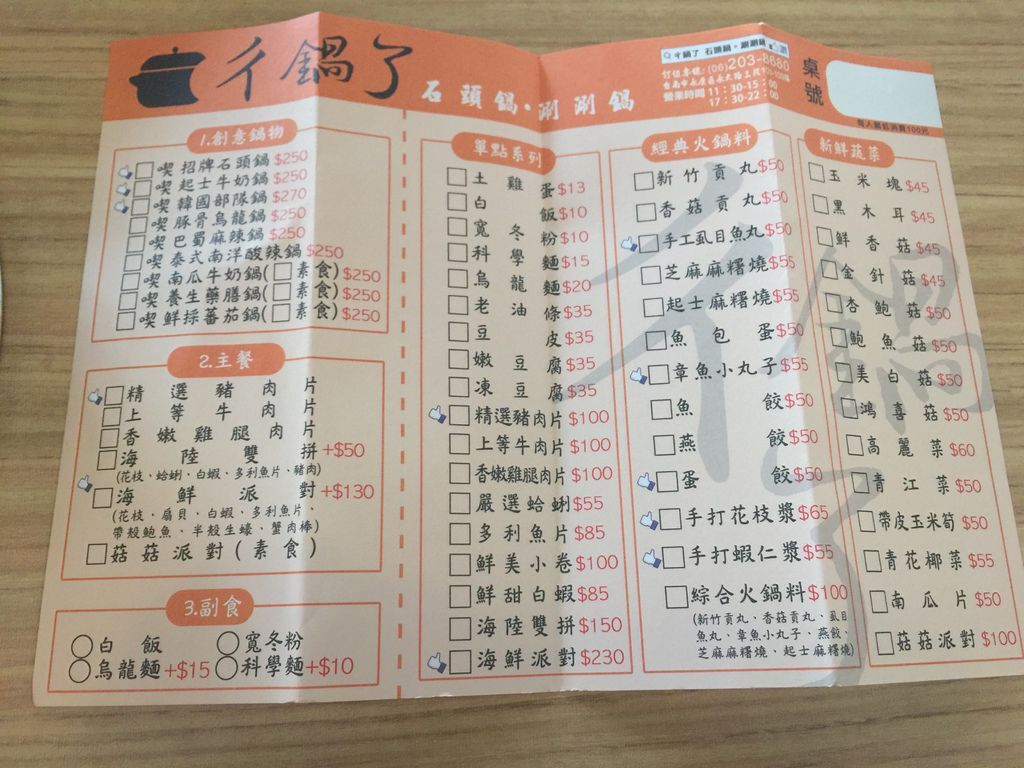 彳鍋了
石頭鍋·涮涮鍋
彳鍋了 石頭鍋·涮涮鍋
訂位專線:(06)203-8680
營業時間 11:30-15:00
17:30-22:00
桌號
每人最低消費100元
1.創意鍋物
喫 招牌石頭鍋 $250
喫 起士牛奶鍋 $250
喫 韓國部隊鍋 $270
喫 豚骨烏龍鍋 $250
喫 巴蜀麻辣鍋 $250
喫 泰式南洋酸辣鍋 $250
喫 南瓜牛奶鍋(□素食) $250
喫 養生藥膳鍋(□素食) $250
喫 鮮採蕃茄鍋(□素食) $250
2.主餐
精選豬肉片
上等牛肉片
香嫩雞腿肉片
海陸雙拼+$50
(花枝、蛤蜊、白蝦、多利魚片、豬肉)
海鮮派對+$130
(花枝、扇貝、白蝦、多利魚片、
帶殼鮑魚、半殼生蠔、蟹肉棒)
菇菇派對(素食)
3.副食
白飯 寬冬粉
烏龍麵+$15 科學麵+$10
單點系列
土雞蛋 $13
白飯 $10
寬冬粉 $10
科學麵 $15
烏龍麵 $20
老油條 $35
豆皮 $35
嫩豆腐 $35
凍豆腐 $35
精選豬肉片 $100
上等牛肉片 $100
香嫩雞腿肉片 $100
嚴選蛤蜊 $55
多利魚片 $85
鮮美小卷 $100
鮮甜白蝦 $85
海陸雙拼 $150
海鮮派對 $230
經典火鍋料
新竹貢丸 $50
香菇貢丸 $50
手工虱目魚丸 $50
芝麻麻糬燒 $55
起士麻糬燒 $55
魚包蛋 $50
章魚小丸子 $55
魚餃 $50
燕餃 $50
蛋餃 $50
手打花枝漿 $65
手打蝦仁漿 $55
綜合火鍋料 $100
(新竹貢丸、香菇貢丸、虱目
魚丸、章魚小丸子、燕餃、
芝麻麻糬燒、起士麻糬燒)
新鮮蔬菜
玉米塊 $45
黑木耳 $45
鮮香菇 $45
金針菇 $45
杏鮑菇 $50
鮑魚菇 $50
美白菇 $50
鴻喜菇 $50
高麗菜 $60
青江菜 $50
帶皮玉米筍 $50
青花椰菜 $55
南瓜片 $50
菇菇派對 $100